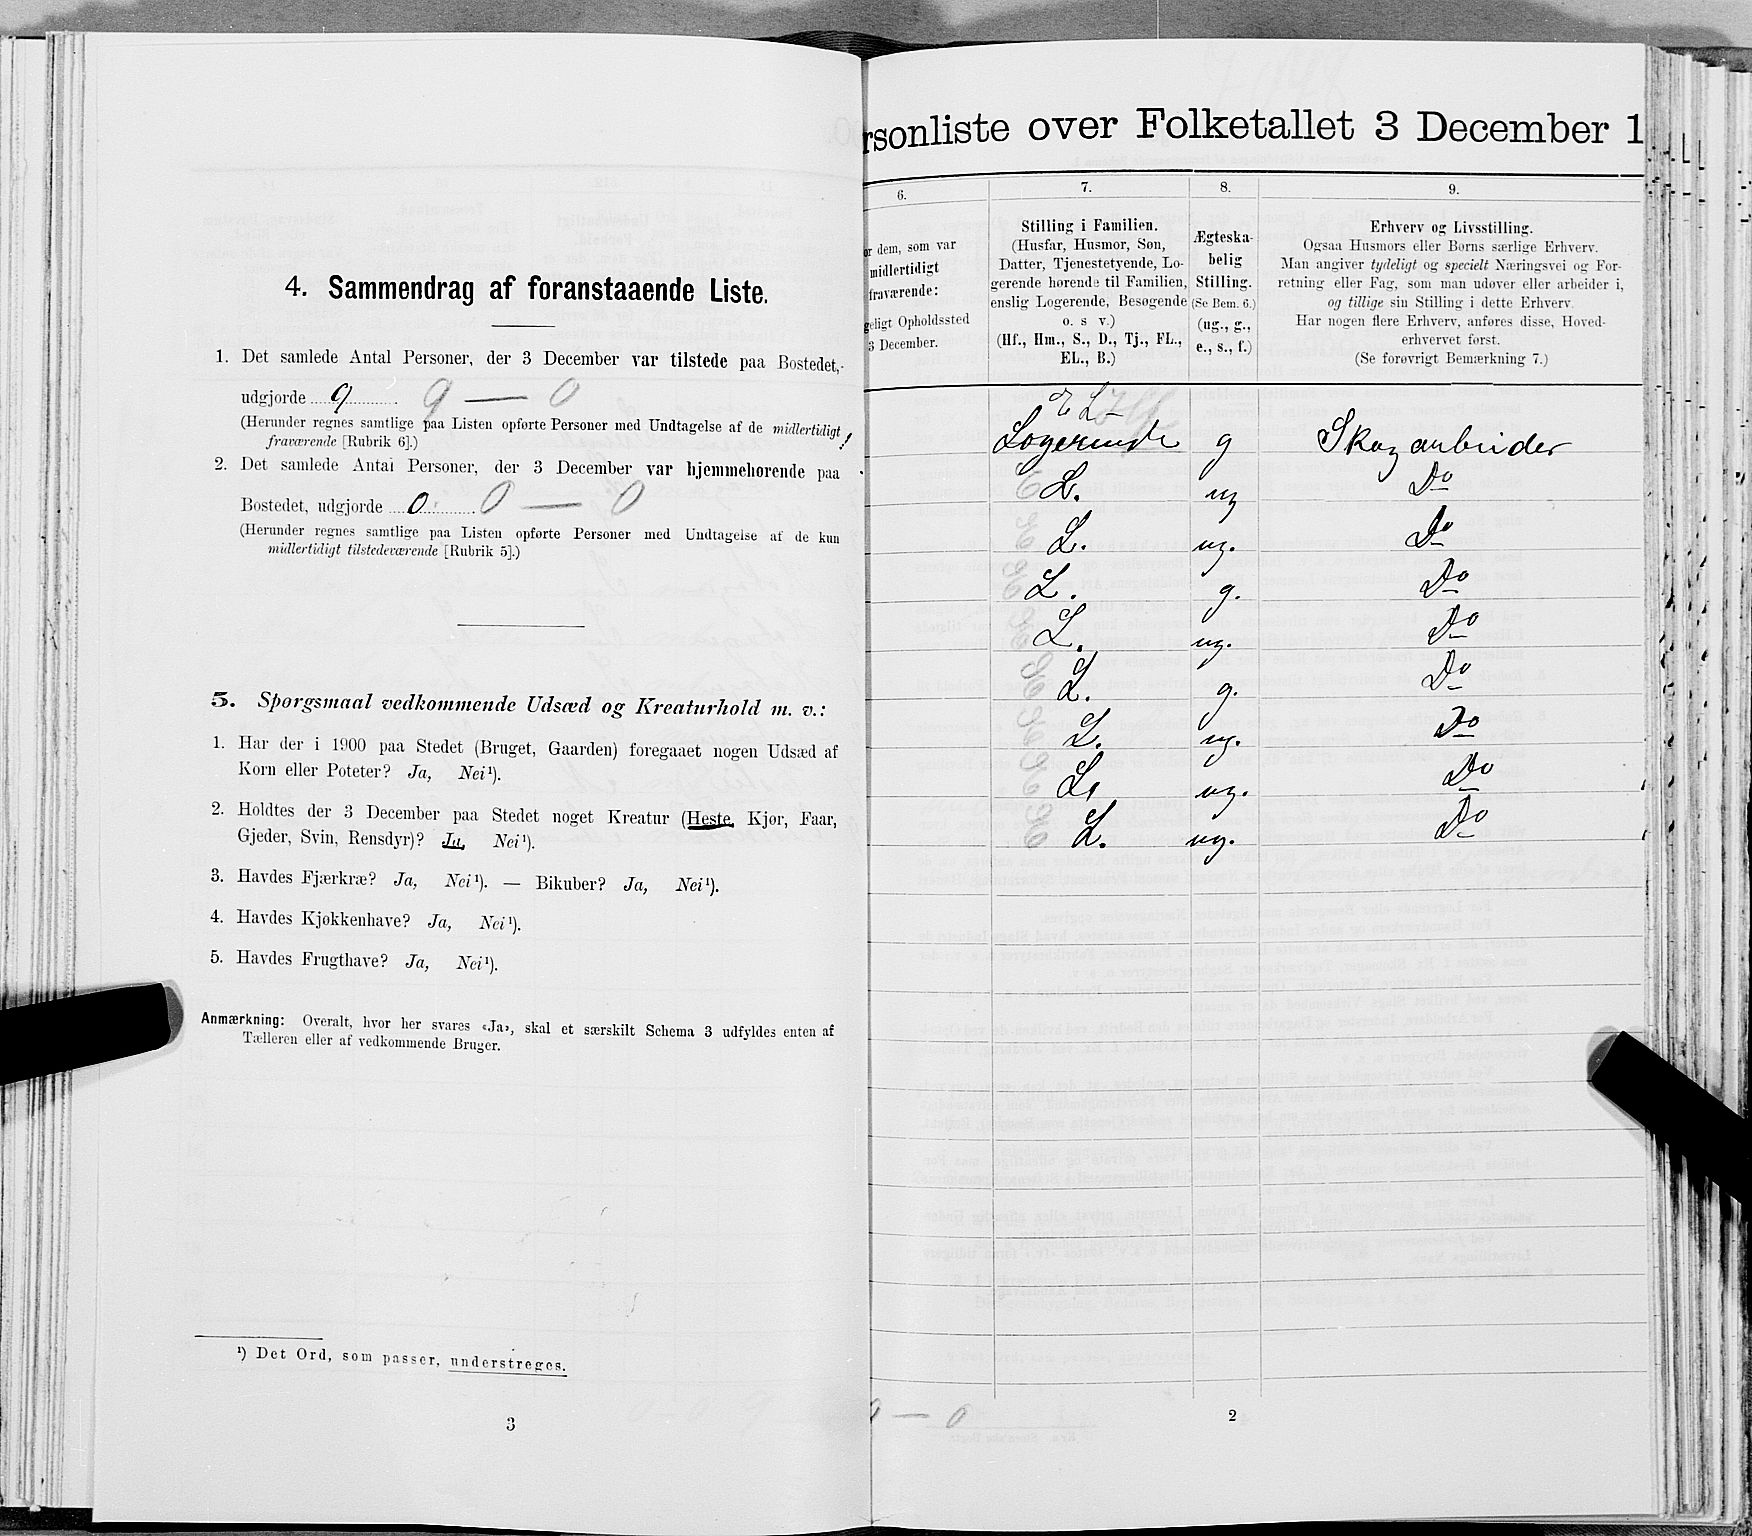 4. Sammendrag af foranstaaende Liste.
1. Det samlede Antal Personer, der 3 December var tilstede paa Bostedet,
udgjorde 9 9 — 0
(Herunder regnes samtlige paa Listen opførte Personer med Undtagelse af de midlertidigt
fraværende [Rubrik 6].)
2. Det samlede Antal Personer, der 3 December var hjemmehørende paa
Bostedet, udgjorde 0 0 — 0
(Herunder regnes samtlige paa Listen opførte Personer med Undtagelse af de kun
midlertidigt tilstedeværende [Rubrik 5].)
5. Spørgsmaal vedkommende Udsæd og Kreaturhold m. v.:
1. Har der i 1900 paa Stedet (Bruget, Gaarden) foregaaet nogen Udsæd af
Korn eller Poteter? Ja, Nei¹).
2. Holdtes der 3 December paa Stedet noget Kreatur (Heste, Kjør, Faar,
Gjeder, Svin, Rensdyr)? Ja, Nei¹).
3. Havdes Fjærkræ? Ja, Nei¹). — Bikuber? Ja, Nei¹).
4. Havdes Kjøkkenhave? Ja, Nei¹).
5. Havdes Frugthave? Ja, Nei¹).
Anmærkning: Overalt, hvor her svares «Ja», skal et særskilt Schema 3 udfyldes enten af
Tælleren eller af vedkommende Bruger.
¹) Det Ord, som passer, understreges.
3
rsonliste over Folketallet 3 December 1
6.
or dem, som var
midlertidigt
fraværende:
geligt Opholdssted
3 December.
7.
Stilling i Familien.
(Husfar, Husmor, Søn,
Datter, Tjenestetyende, Lo-
gerende hørende til Familien,
enslig Logerende, Besøgende
o. s v.)
(Hf., Hm., S., D., Tj., FL.,
EL., B.)
8.
Ægteska-
belig
Stilling.
(Se Bem. 6.)
(ug., g.,
e., s., f.)
9.
Erhverv og Livsstilling.
Ogsaa Husmors eller Børns særlige Erhverv.
Man angiver tydeligt og specielt Næringsvei og For-
retning eller Fag, som man udøver eller arbeider i,
og tillige sin Stilling i dette Erhverv.
Har nogen flere Erhverv, anføres disse, Hoved-
erhvervet først.
(Se forøvrigt Bemærkning 7.)
E L
Logerende g Skogarbeider
L. ug Do
L. ug. Do
L. g. Do
L. ug. Do
L. g. Do
L. ug. Do
L. ug. Do
L. ug. Do
— 0
2